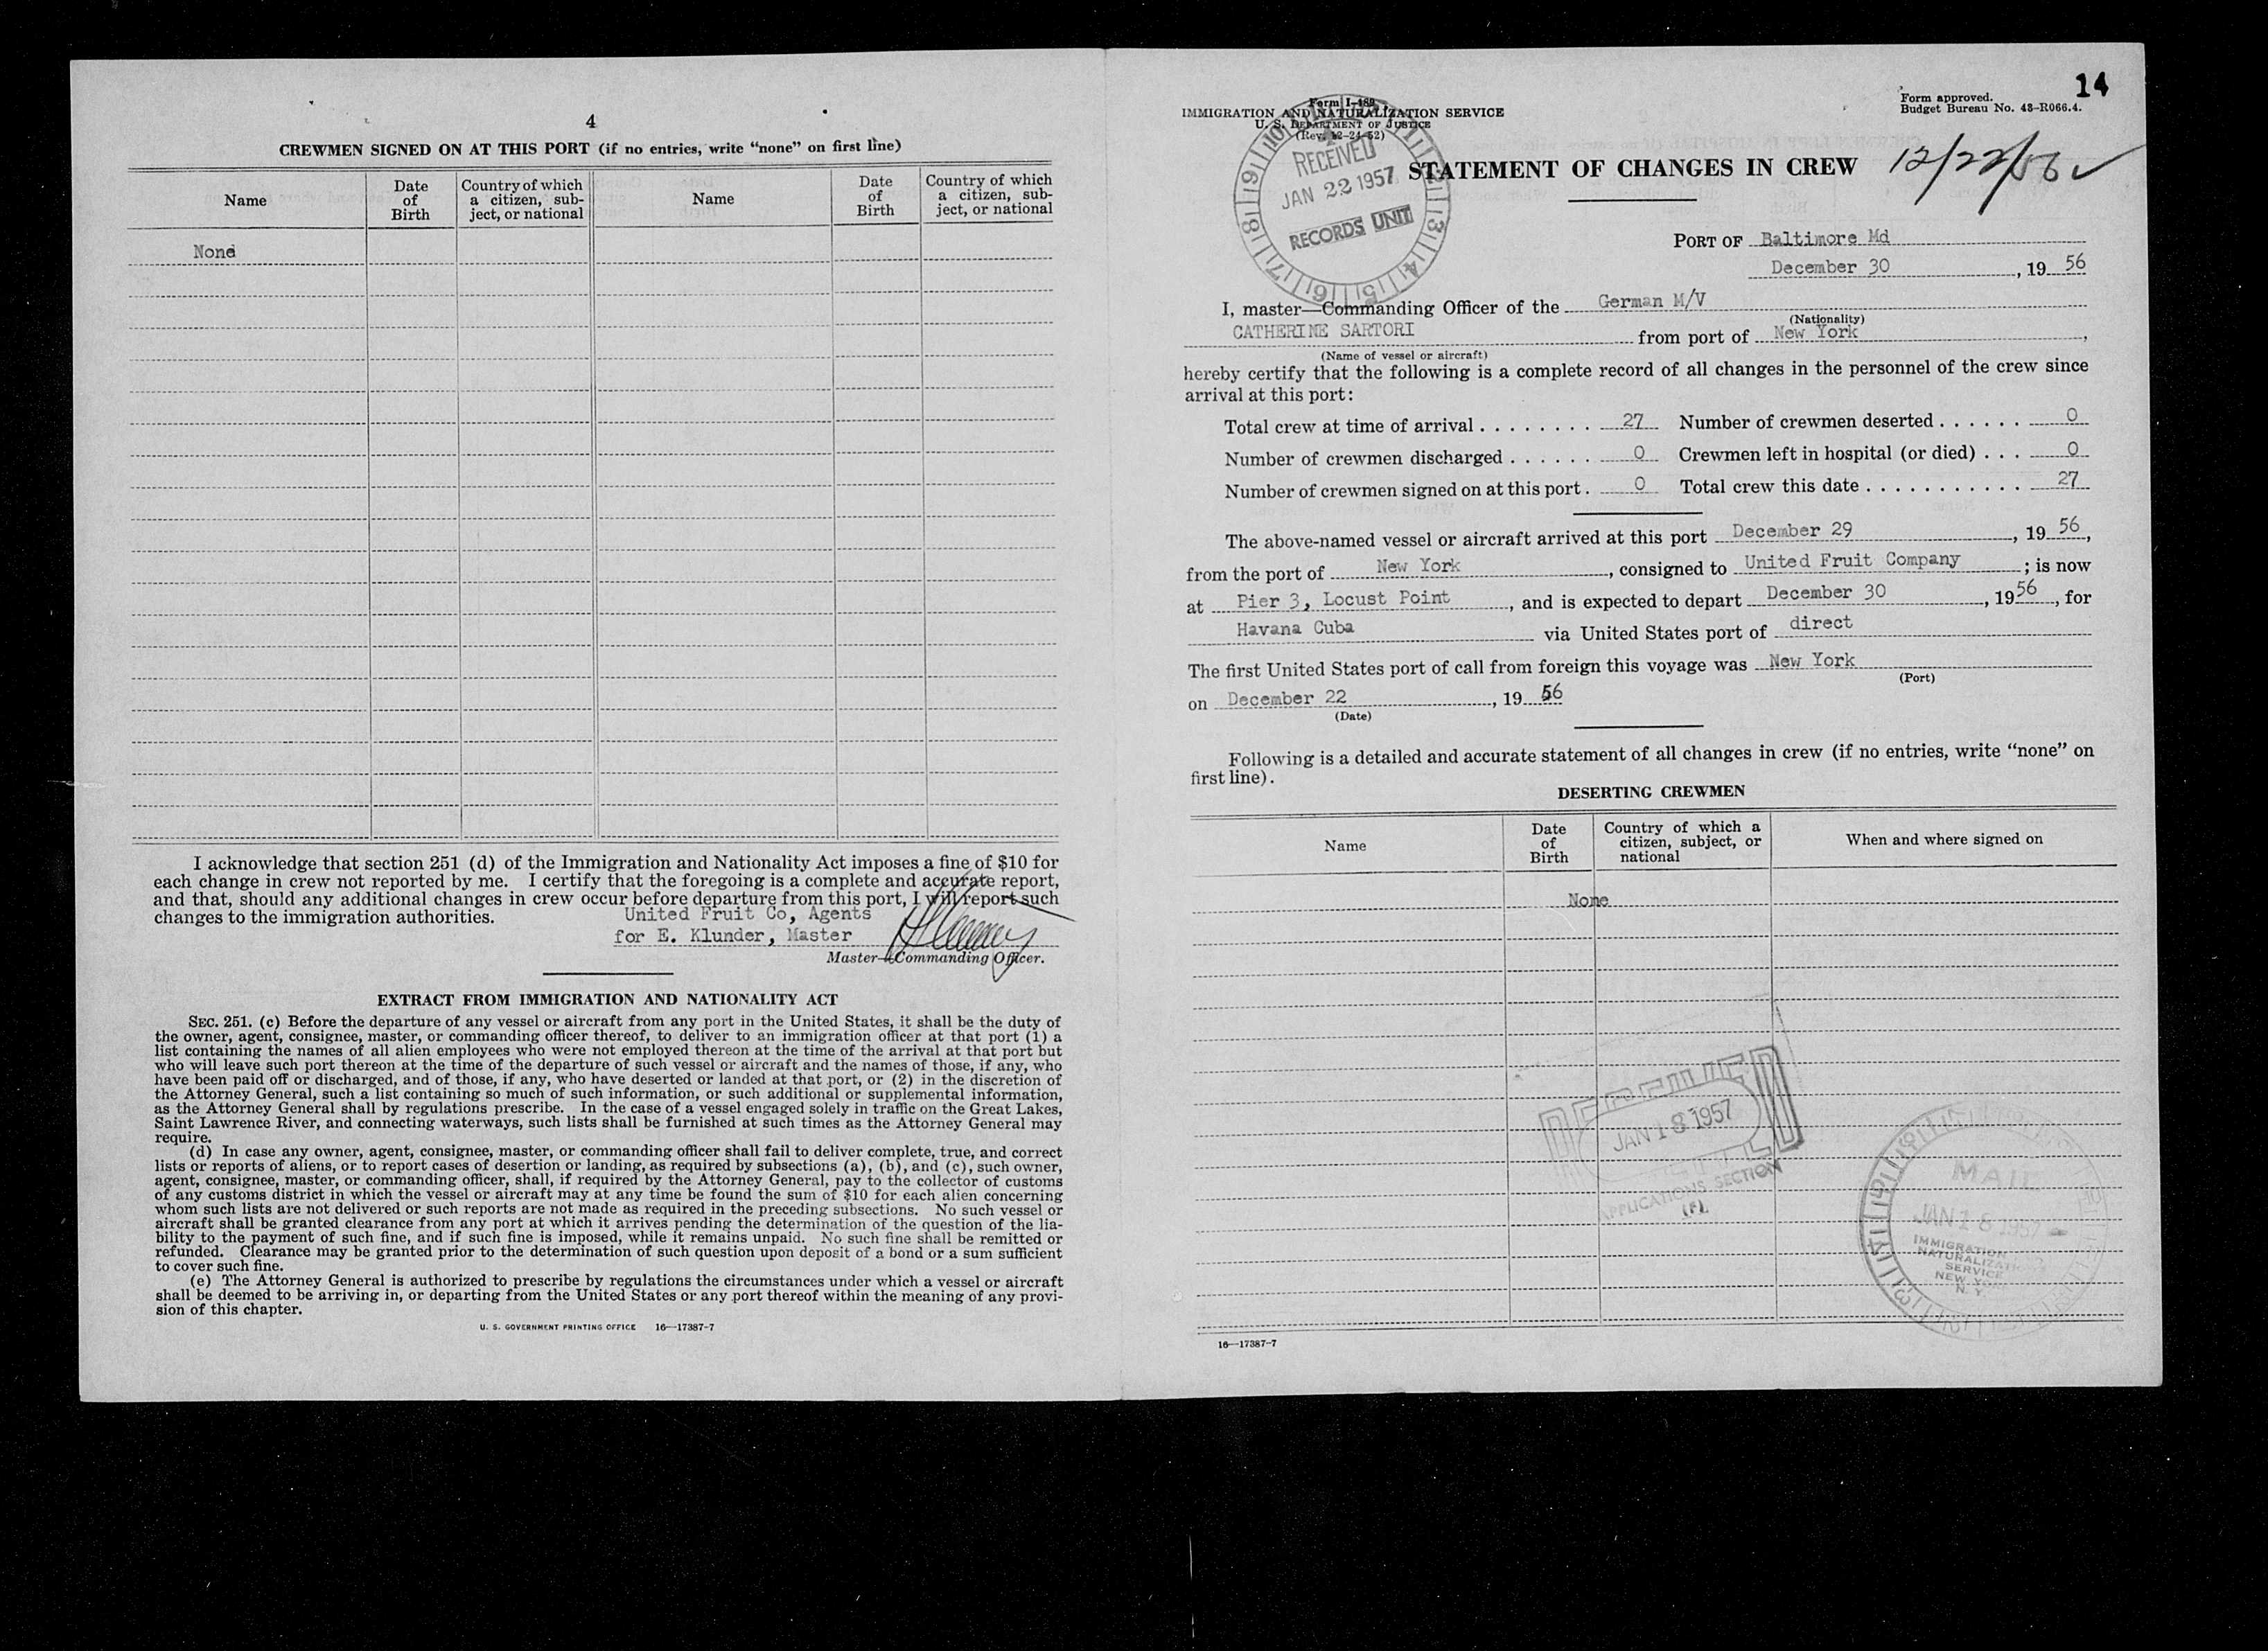 4
CREWMEN SIGNED ON AT THIS PORT (if no entries, write “none” on first line)
Name
Date of Birth
Country of which a citizen, subject, or national
Name
Date of Birth
Country of which a citizen, subject, or national
None
I acknowledge that section 251 (d) of the Immigration and Nationality Act imposes a fine of $10 for
each change in crew not reported by me. I certify that the foregoing is a complete and accurate report,
and that, should any additional changes in crew occur before departure from this port, I will report such
changes to the immigration authorities.
United Fruit Co, Agents
for E. Klunder, Master
Master—Commanding Officer.
EXTRACT FROM IMMIGRATION AND NATIONALITY ACT
SEC. 251. (c) Before the departure of any vessel or aircraft from any port in the United States, it shall be the duty of
the owner, agent, consignee, master, or commanding officer thereof, to deliver to an immigration officer at that port (1) a
list containing the names of all alien employees who were not employed thereon at the time of the arrival at that port but
who will leave such port thereon at the time of the departure of such vessel or aircraft and the names of those, if any, who
have been paid off or discharged, and of those, if any, who have deserted or landed at that port, or (2) in the discretion of
the Attorney General, such a list containing so much of such information, or such additional or supplemental information,
as the Attorney General shall by regulations prescribe. In the case of a vessel engaged solely in traffic on the Great Lakes,
Saint Lawrence River, and connecting waterways, such lists shall be furnished at such times as the Attorney General may
require.
(d) In case any owner, agent, consignee, master, or commanding officer shall fail to deliver complete, true, and correct
lists or reports of aliens, or to report cases of desertion or landing, as required by subsections (a), (b), and (c), such owner,
agent, consignee, master, or commanding officer, shall, if required by the Attorney General, pay to the collector of customs
of any customs district in which the vessel or aircraft may at any time be found the sum of $10 for each alien concerning
whom such lists are not delivered or such reports are not made as required in the preceding subsections. No such vessel or
aircraft shall be granted clearance from any port at which it arrives pending the determination of the question of the lia-
bility to the payment of such fine, and if such fine is imposed, while it remains unpaid. No such fine shall be remitted or
refunded. Clearance may be granted prior to the determination of such question upon deposit of a bond or a sum sufficient
to cover such fine.
(e) The Attorney General is authorized to prescribe by regulations the circumstances under which a vessel or aircraft
shall be deemed to be arriving in, or departing from the United States or any port thereof within the meaning of any provi-
sion of this chapter.
U. S. GOVERNMENT PRINTING OFFICE 16—17387-7
14
Form approved.
Budget Bureau No. 43-R066.4.
Form I-489
IMMIGRATION AND NATURALIZATION SERVICE
U. S. DEPARTMENT OF JUSTICE
(Rev. 12-24-52)
RECEIVED
JAN 22 1957
RECORDS UNIT
STATEMENT OF CHANGES IN CREW
12/22/56
PORT OF Baltimore Md
December 30, 19 56
I, master—Commanding Officer of the German M/V
(Nationality)
CATHERINE SARTORI from port of New York,
(Name of vessel or aircraft)
hereby certify that the following is a complete record of all changes in the personnel of the crew since
arrival at this port:
Total crew at time of arrival . . . . . . . . 27 Number of crewmen deserted . . . . . . 0
Number of crewmen discharged . . . . . . 0 Crewmen left in hospital (or died) . . . 0
Number of crewmen signed on at this port . 0 Total crew this date . . . . . . . . . . . . 27
The above-named vessel or aircraft arrived at this port December 29, 19 56,
from the port of New York, consigned to United Fruit Company; is now
at Pier 3, Locust Point, and is expected to depart December 30, 19 56, for
Havana Cuba via United States port of direct
The first United States port of call from foreign this voyage was New York
(Port)
on December 22, 19 56
(Date)
Following is a detailed and accurate statement of all changes in crew (if no entries, write “none” on
first line).
DESERTING CREWMEN
Name
Date of Birth
Country of which a citizen, subject, or national
When and where signed on
None
JAN 18 1957
APPLICATIONS SECTION
MAIL
JAN 18 1957
IMMIGRATION
NATURALIZATION
SERVICE
NEW YORK
N. Y.
16—17387-7